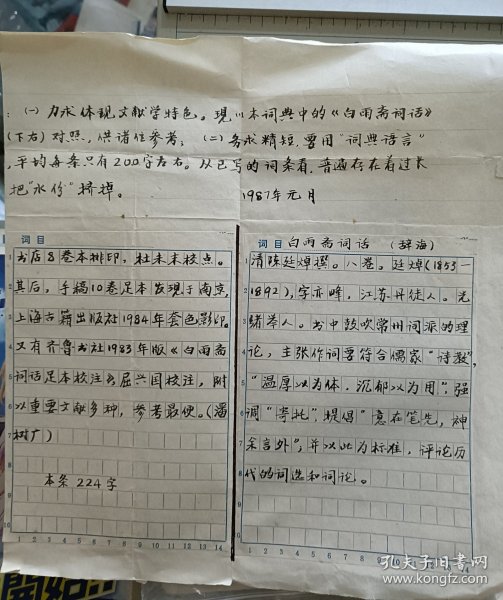 ：（一）力求体现文献学特色。现以本词典中的《白雨斋词话》
（下右）对照，供诸位参考；（二）务求精短，要用“词典语言”
，平均每条只有200字左右。从已写的词条看，普遍存在着过长
把“水份”挤掉。
1987年元月
词目
书店8卷本排印，杜未末校点。
其后，手稿10卷足本发现于南京，
上海古籍出版社1984年套色影印。
又有齐鲁书社1983年版《白雨斋
词话足本校注》屈兴国校注，附
以重要文献多种，参考最便。（潘
树广）
本条224字
词目 白雨斋词话 （辞海）
清陈廷焯撰。八卷。廷焯（1853—
1892），字亦峰，江苏丹徒人。光
绪举人。书中鼓吹常州词派的理
论，主张作词要符合儒家“诗教”，
“温厚以为体，沉郁以为用”；强
调“寄托”，提倡“意在笔先，神
余言外”；并以此为标准，评论历
代的词选和词论。
孔夫子旧书网
www.kongfz.com